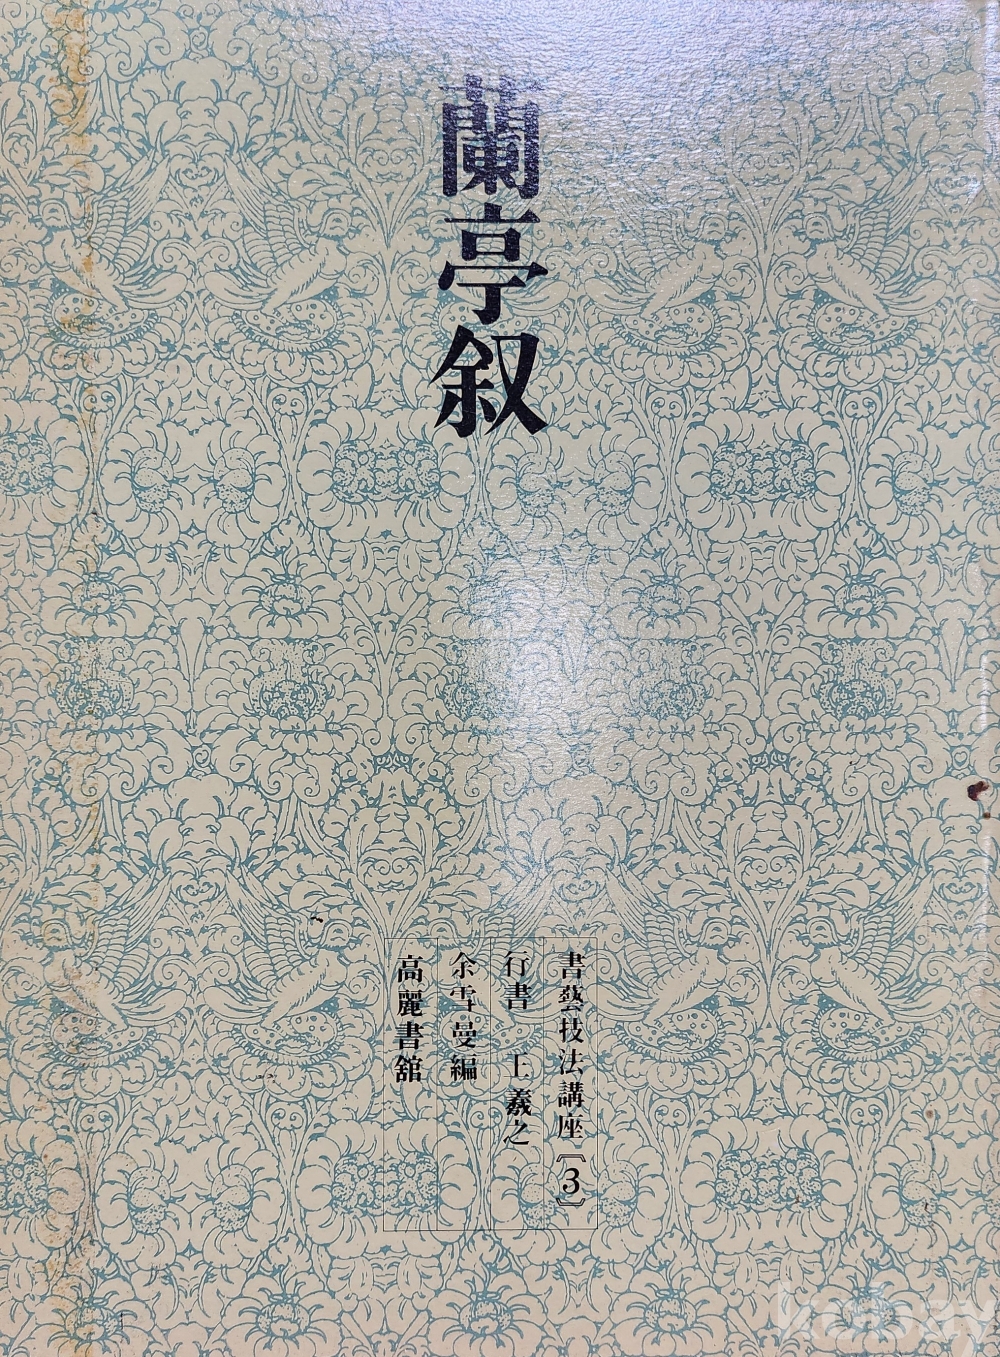 蘭亭叙
書藝技法講座〖3〗
行書 王羲之
余雪曼編
高麗書舘
kobay